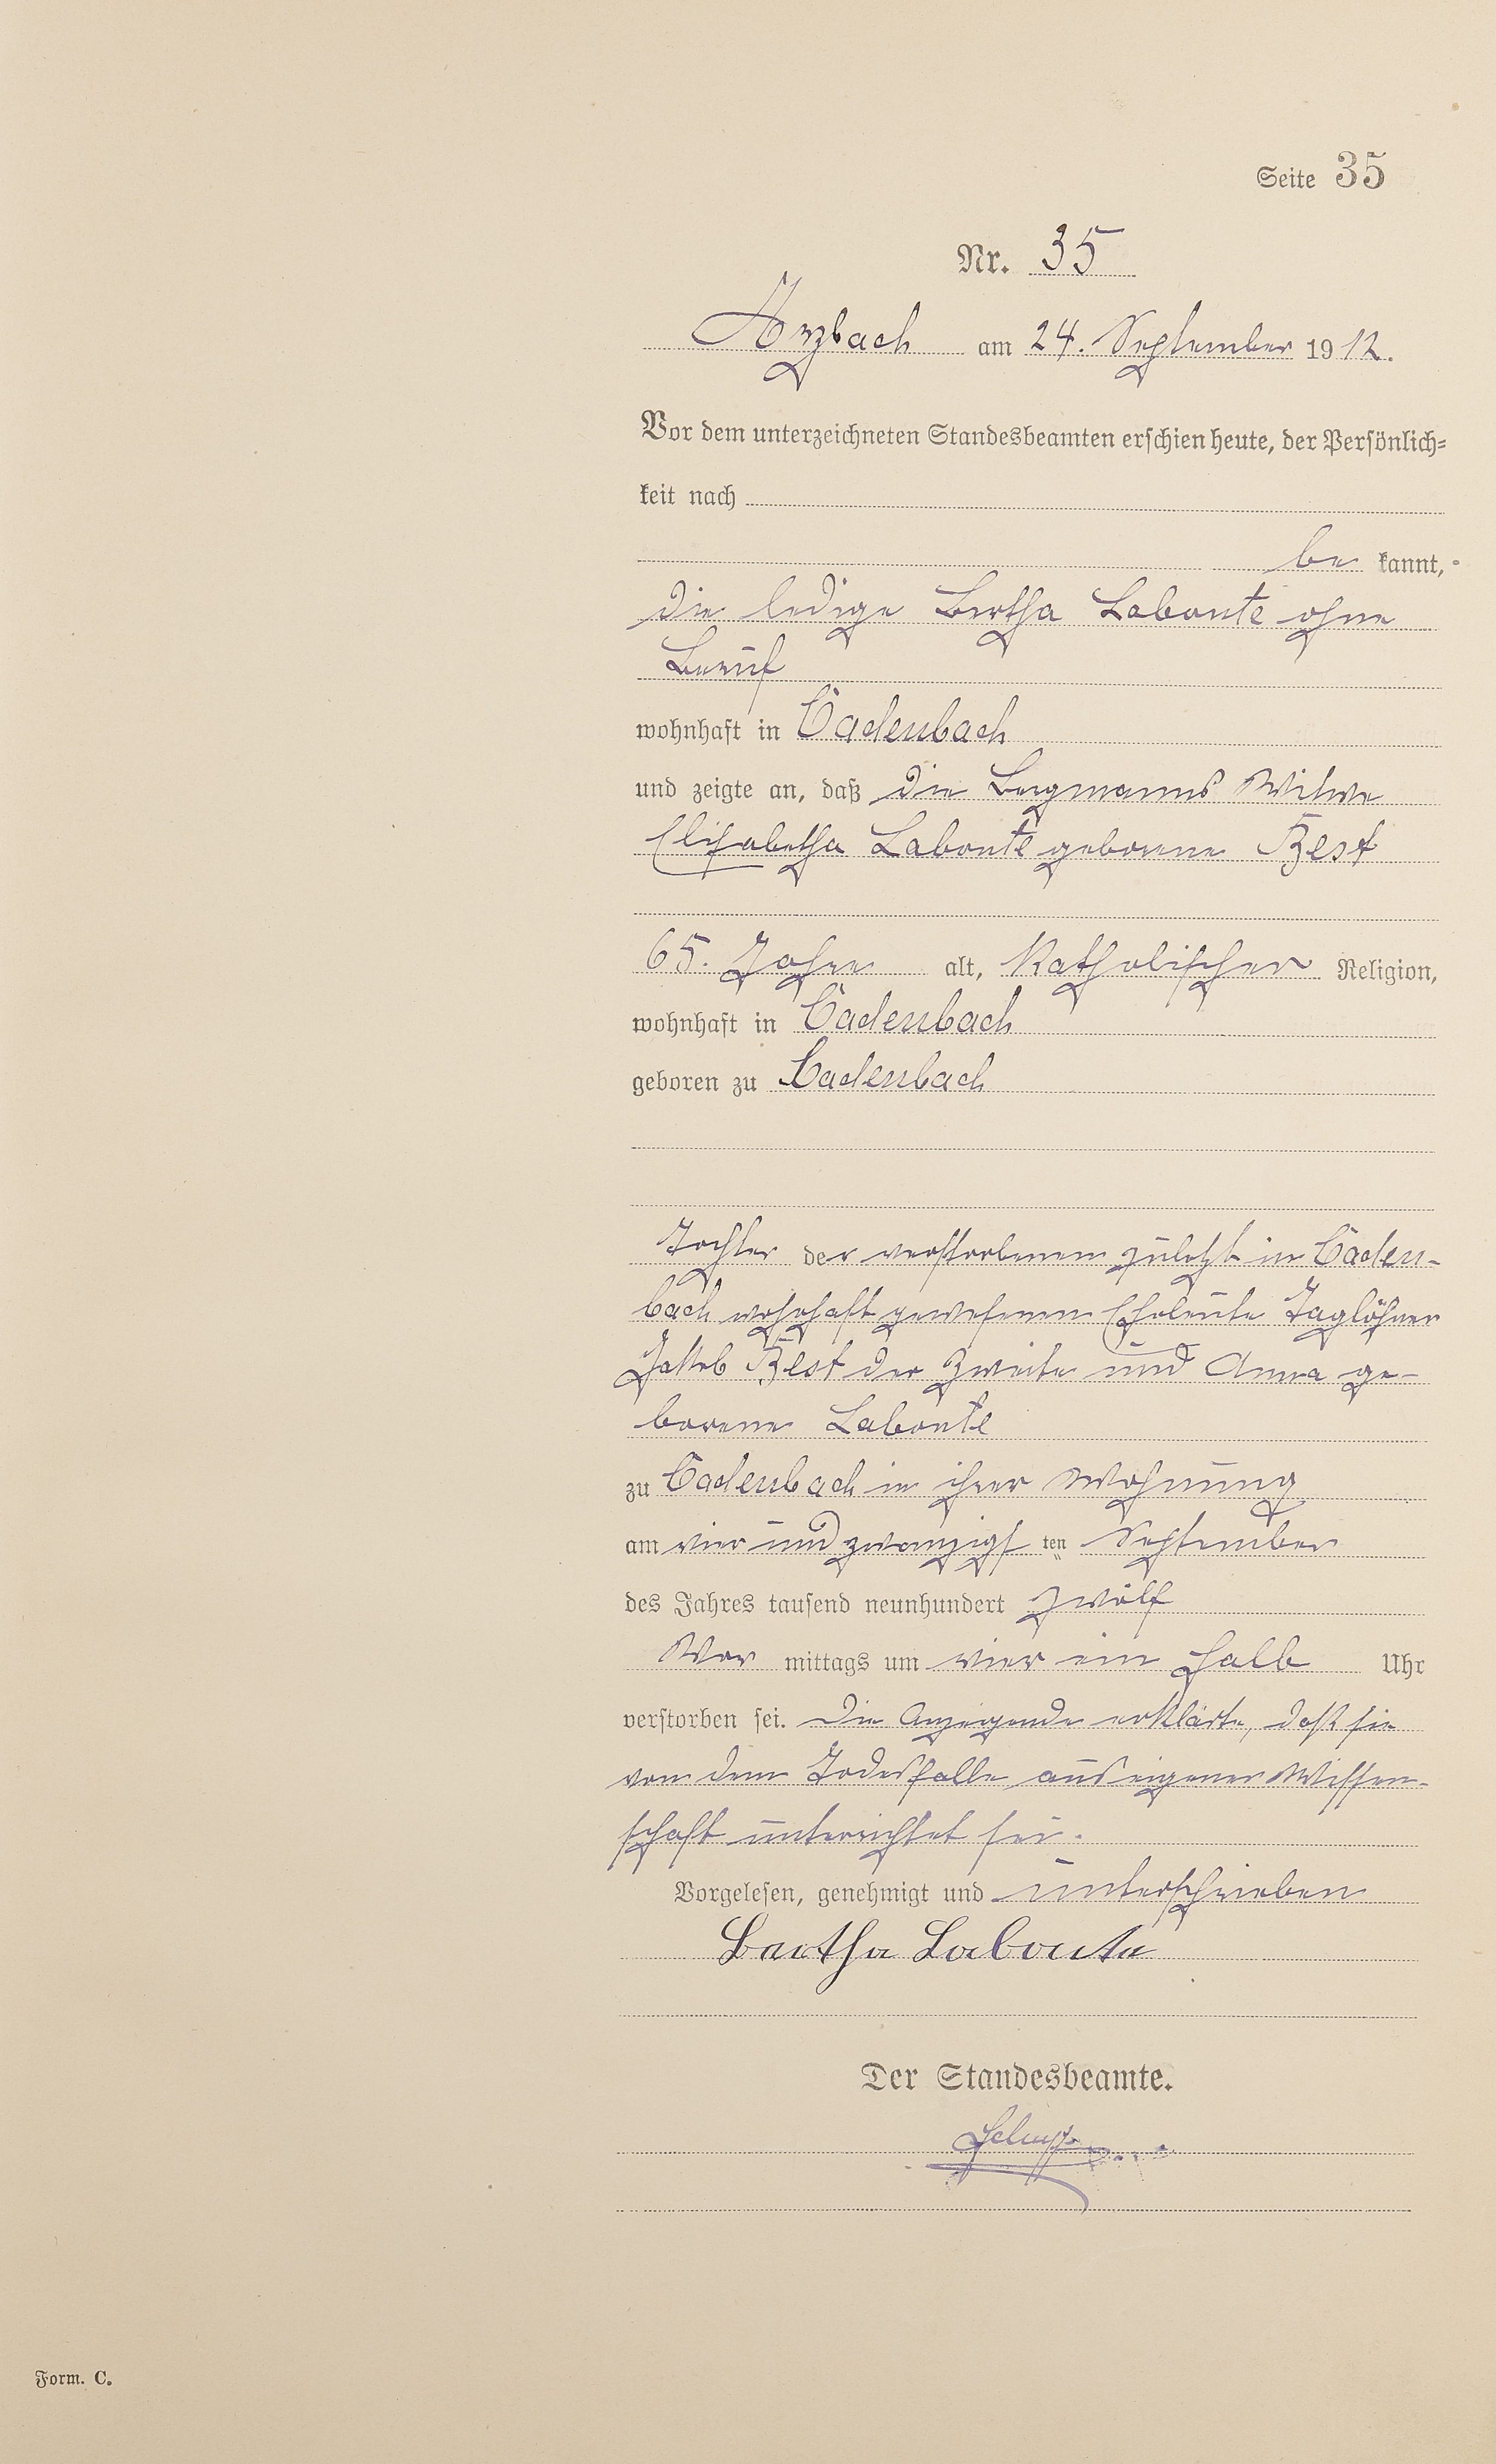 Seite 35
Nr. 35
Arzbach am 24. September 1912.
Vor dem unterzeichneten Standesbeamten erschien heute, der Persönlich=
keit nach
be kannt,
die ledige Bertha Labonte ohne
Beruf
wohnhaft in Cadenbach
und zeigte an, daß die Bergmanns Witwe
Elisabetha Labonte geborene Best
65. Jahre alt, Katholischer Religion,
wohnhaft in Cadenbach
geboren zu Cadenbach
Tochter der verstorbenen zuletzt in Caden-
bach wohnhaft gewesenen Eheleute Taglöhner
Jakob Best der Zweite und Anna ge-
borene Labonte
zu Cadenbach in ihrer Wohnung
am vier und zwanzigsten September
des Jahres tausend neunhundert zwölf
Vor mittags um vier ein halb Uhr
verstorben sei. Die Anzeigende erklärte, daß sie
von dem Todesfalle aus eigener Wissen-
schaft unterrichtet sei.
Vorgelesen, genehmigt und unterschrieben
Bertha Labonte
Der Standesbeamte.
Form. C.